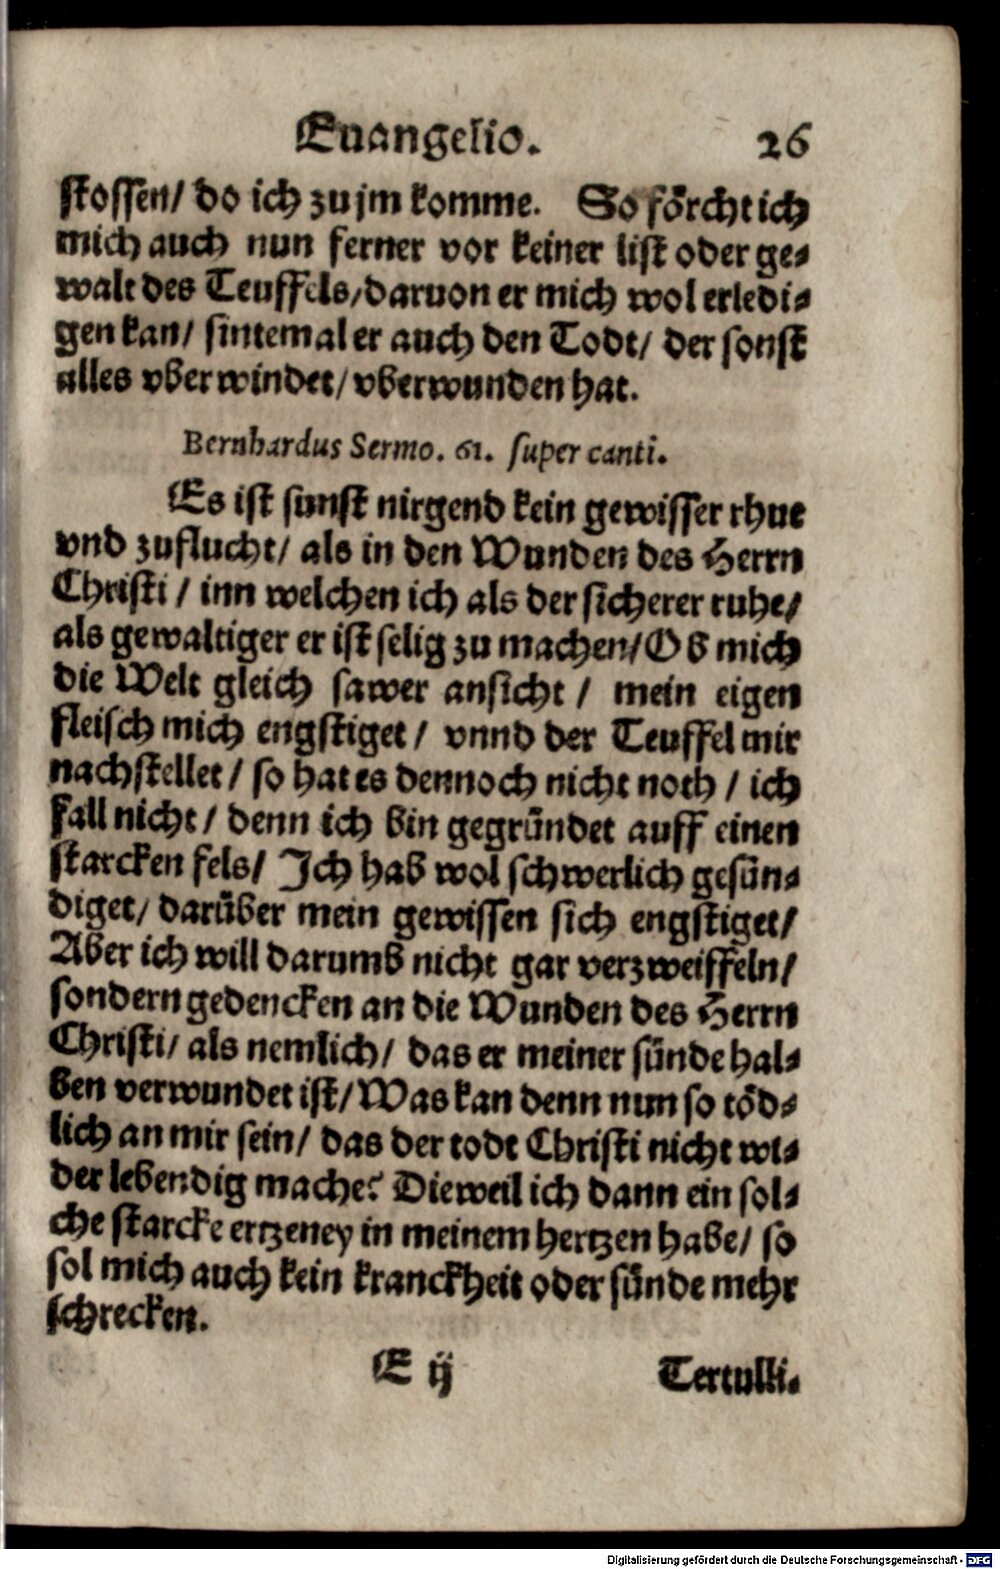 Euangelio. 26
stossen/ do ich zu jm komme. So förcht ich
mich auch nun ferner vor keiner list oder ge-
walt des Teuffels/daruon er mich wol erledi-
gen kan/ sintemal er auch den Todt/ der sonst
alles vberwindet/ vberwunden hat.
Bernhardus Sermo. 61. super canti.
Es ist sunst nirgend kein gewisser rhue
vnd zuflucht/ als in den Wunden des Herrn
Christi / inn welchen ich als der sicherer ruhe/
als gewaltiger er ist selig zu machen/ Ob mich
die Welt gleich sawer ansicht / mein eigen
fleisch mich engstiget / vnnd der Teuffel mir
nachstellet / so hat es dennoch nicht noth / ich
fall nicht / denn ich bin gegründet auff einen
starcken fels/ Ich hab wol schwerlich gesün-
diget/ darüber mein gewissen sich engstiget/
Aber ich will darumb nicht gar verzweiffeln/
sondern gedencken an die Wunden des Herrn
Christi/ als nemlich/ das er meiner sünde hal-
ben verwundet ist/ Was kan denn nun so töd-
lich an mir sein/ das der todt Christi nicht wi-
der lebendig mache? Dieweil ich dann ein sol-
che starcke ertzeney in meinem hertzen habe/ so
sol mich auch kein kranckheit oder sünde mehr
schrecken.
E ij Tertulli-
Digitalisierung gefördert durch die Deutsche Forschungsgemeinschaft - DFG